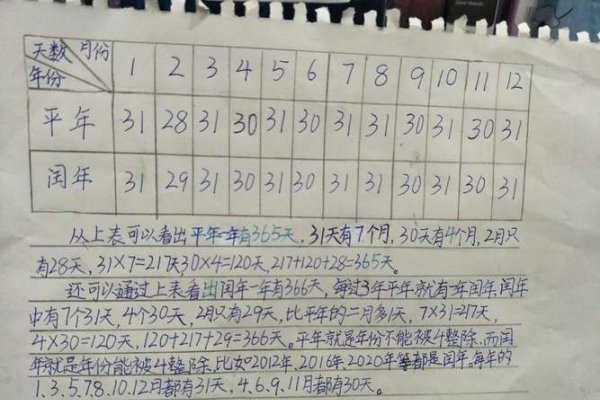 天数 月份
年份
1 2 3 4 5 6 7 8 9 10 11 12
平年 31 28 31 30 31 30 31 31 30 31 30 31
闰年 31 29 31 30 31 30 31 31 30 31 30 31
从上表可以看出平年一年有365天,31天有7个月,30天有4个月,2月只
有28天,31×7=217天30×4=120天,217+120+28=365天。
还可以通过上表看出闰年一年有366天,每过3年平年,就有一年闰年,闰年
中有7个31天,4个30天,2月只有29天,比平年的二月多1天,7×31=217天,
4×30=120天,120+217+29=366天。平年就是年份不能被4整除,而闰
年就是年份能被4整除,比如2012年,2016年,2020年等都是闰年。每年的
1.3.5.7.8.10.12月都有31天,4.6.9.11月都有30天。